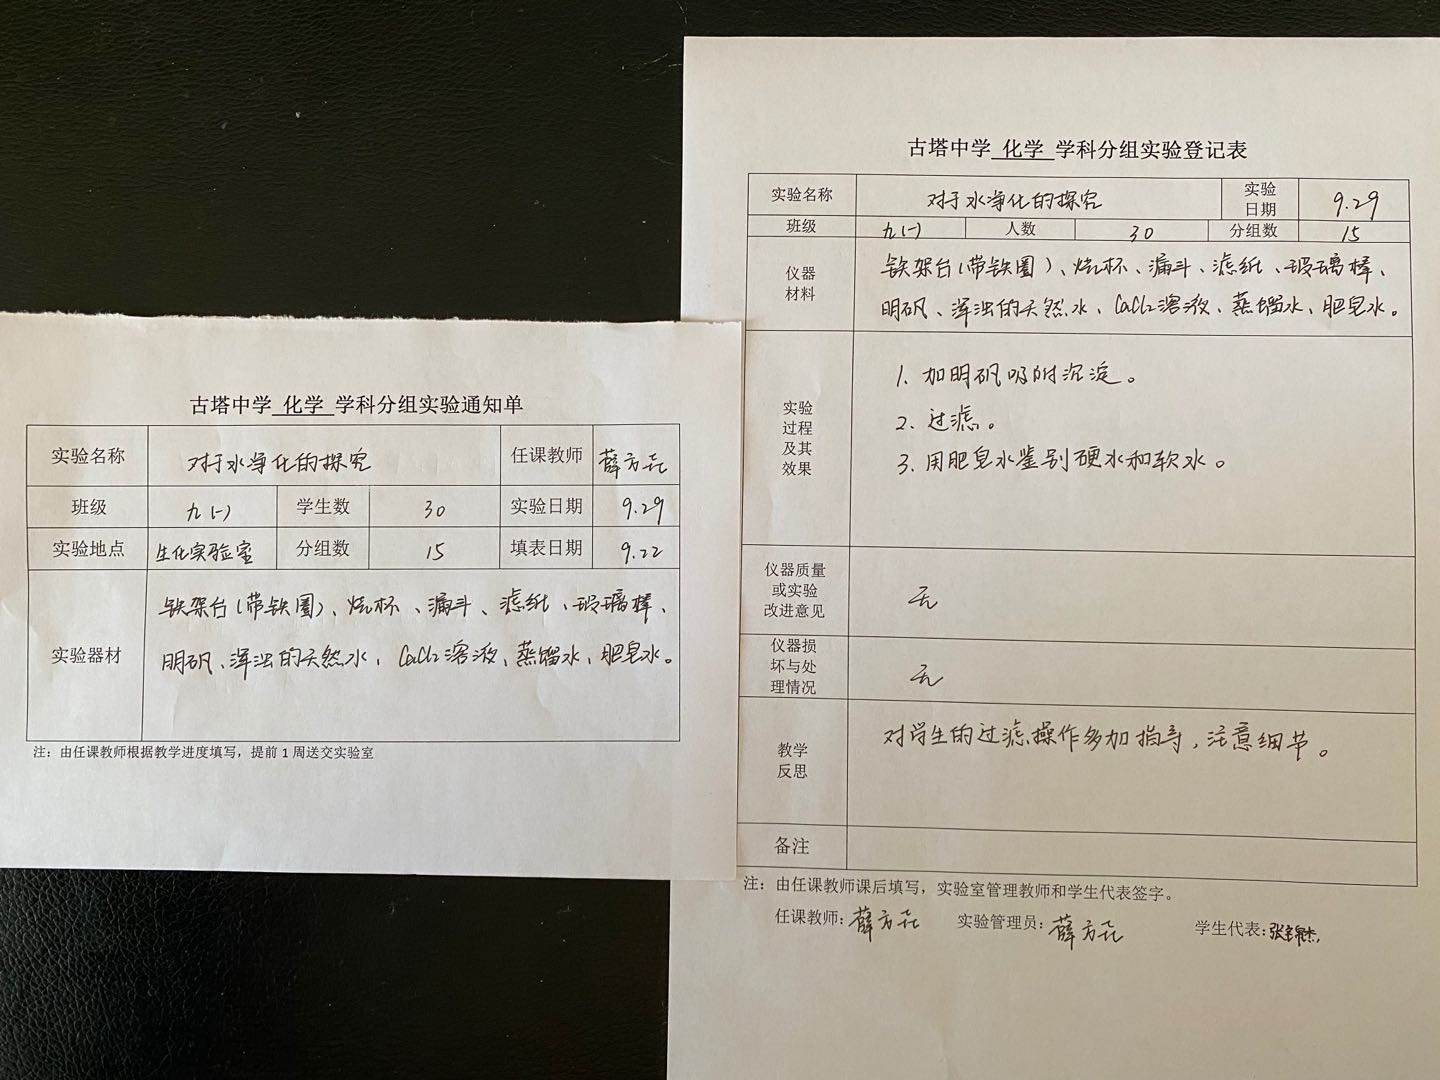 古塔中学 化学 学科分组实验通知单
实验名称 对于水净化的探究 任课教师 薛方
班级 九(一) 学生数 30 实验日期 9.29
实验地点 生化实验室 分组数 15 填表日期 9.22
铁架台(带铁圈)、烧杯、漏斗、滤纸、玻璃棒、
实验器材
明矾、浑浊的天然水、CaCl2溶液、蒸馏水、肥皂水。
注：由任课教师根据教学进度填写，提前 1 周送交实验室
古塔中学 化学 学科分组实验登记表
实验名称 对于水净化的探究 实验日期 9.29
班级 九(一) 人数 30 分组数 15
仪器材料
铁架台(带铁圈)、烧杯、漏斗、滤纸、玻璃棒、
明矾、浑浊的天然水、CaCl2溶液、蒸馏水、肥皂水。
实验过程及其效果
1. 加明矾吸附沉淀。
2. 过滤。
3. 用肥皂水鉴别硬水和软水。
仪器质量或实验改进意见 无
仪器损坏与处理情况 无
教学反思 对学生的过滤操作多加指导，注意细节。
备注
注：由任课教师课后填写，实验室管理教师和学生代表签字。
任课教师：薛方 实验管理员：薛方 学生代表：张